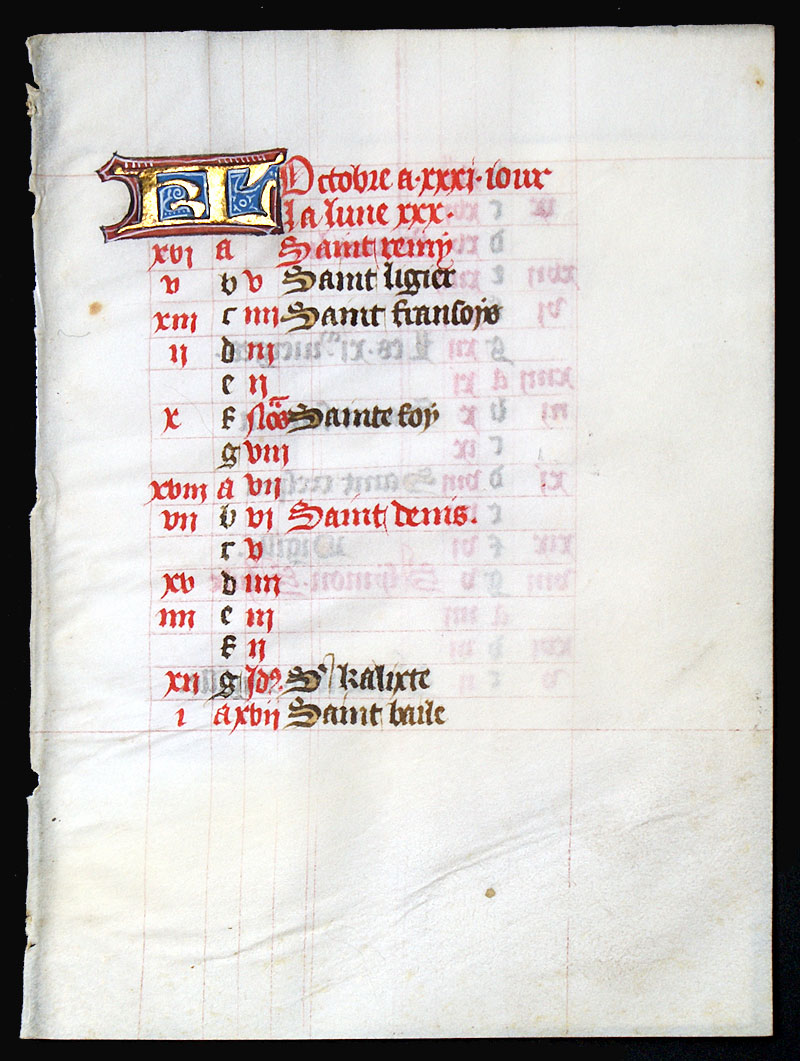 KL Octobre a·xxxi·iour
La lune xxx·
xvi a Saint remy
v b v Saint ligier
xiii c iiii Saint fransoys
ii d iii
e ii
x f Nõs Sainte foy
g viii
xviii a vii
vii b vi Saint denis.
c v
xv d iiii
iiii e iii
f ii
xii g Jdꝰ. Sᵗ kalixte
i a xvii Saint baile